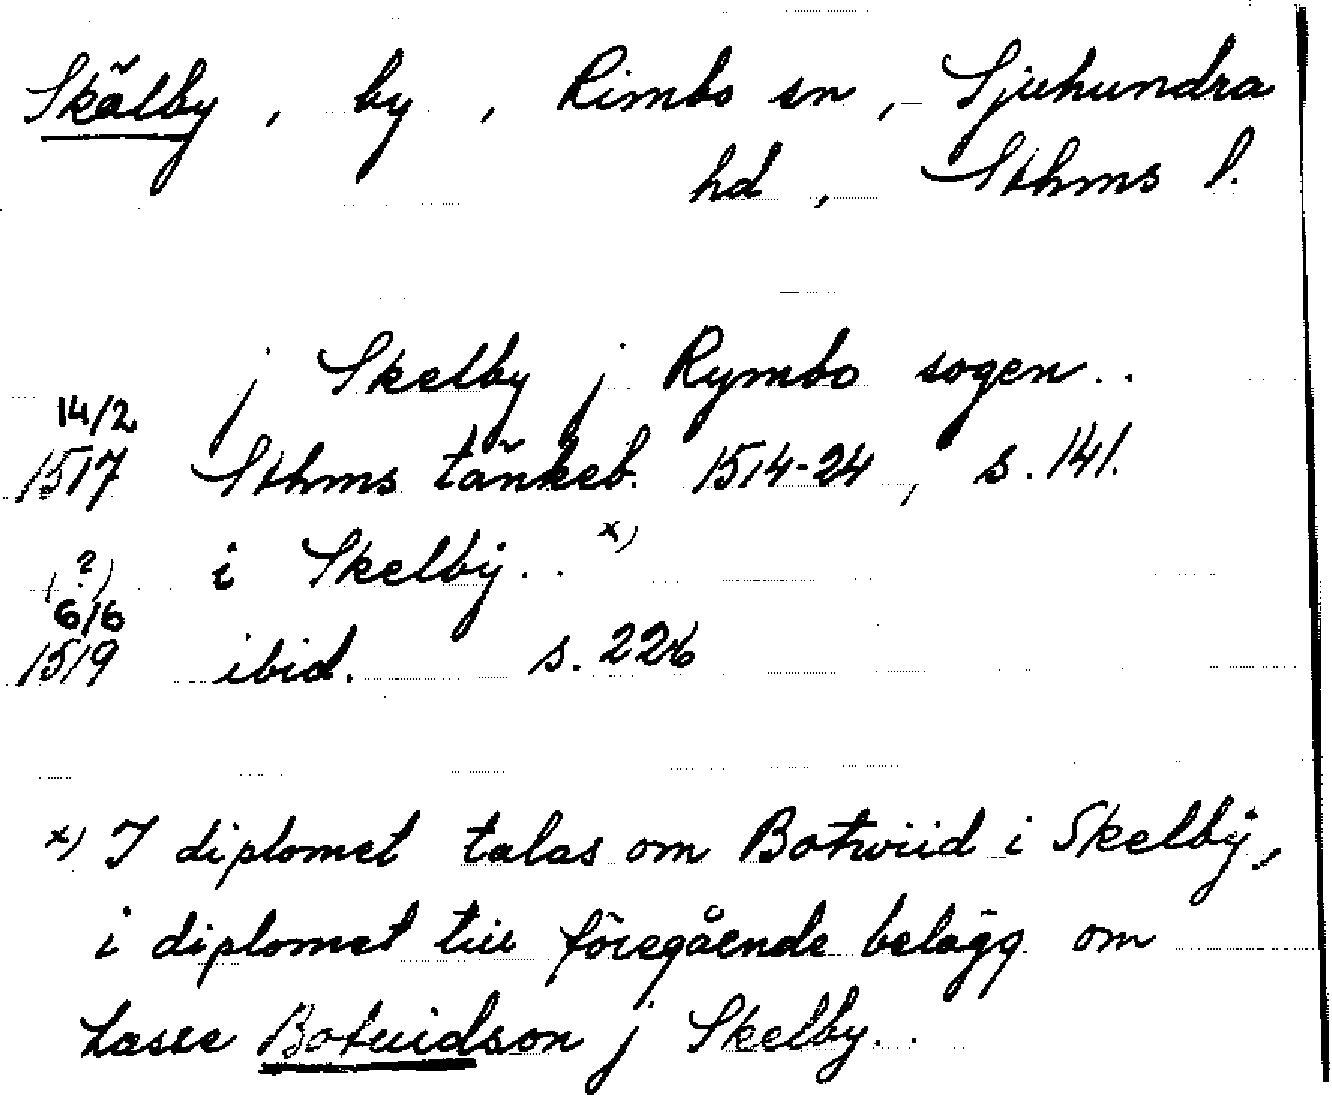 Skälby, by, Rimbo sn, Sjuhundra
hd, Sthms l.
j Skelby j Rymbo sogen..
14/2
1517 Sthms tänkeb. 1514-24, s. 141.
(?) i Skelbÿ.. x)
6/6
1519 ibid. s. 226
x) I diplomet talas om Botwiid i Skelbÿ,
i diplomet till föregående belägg om
Lasse Botuidson j Skelby..